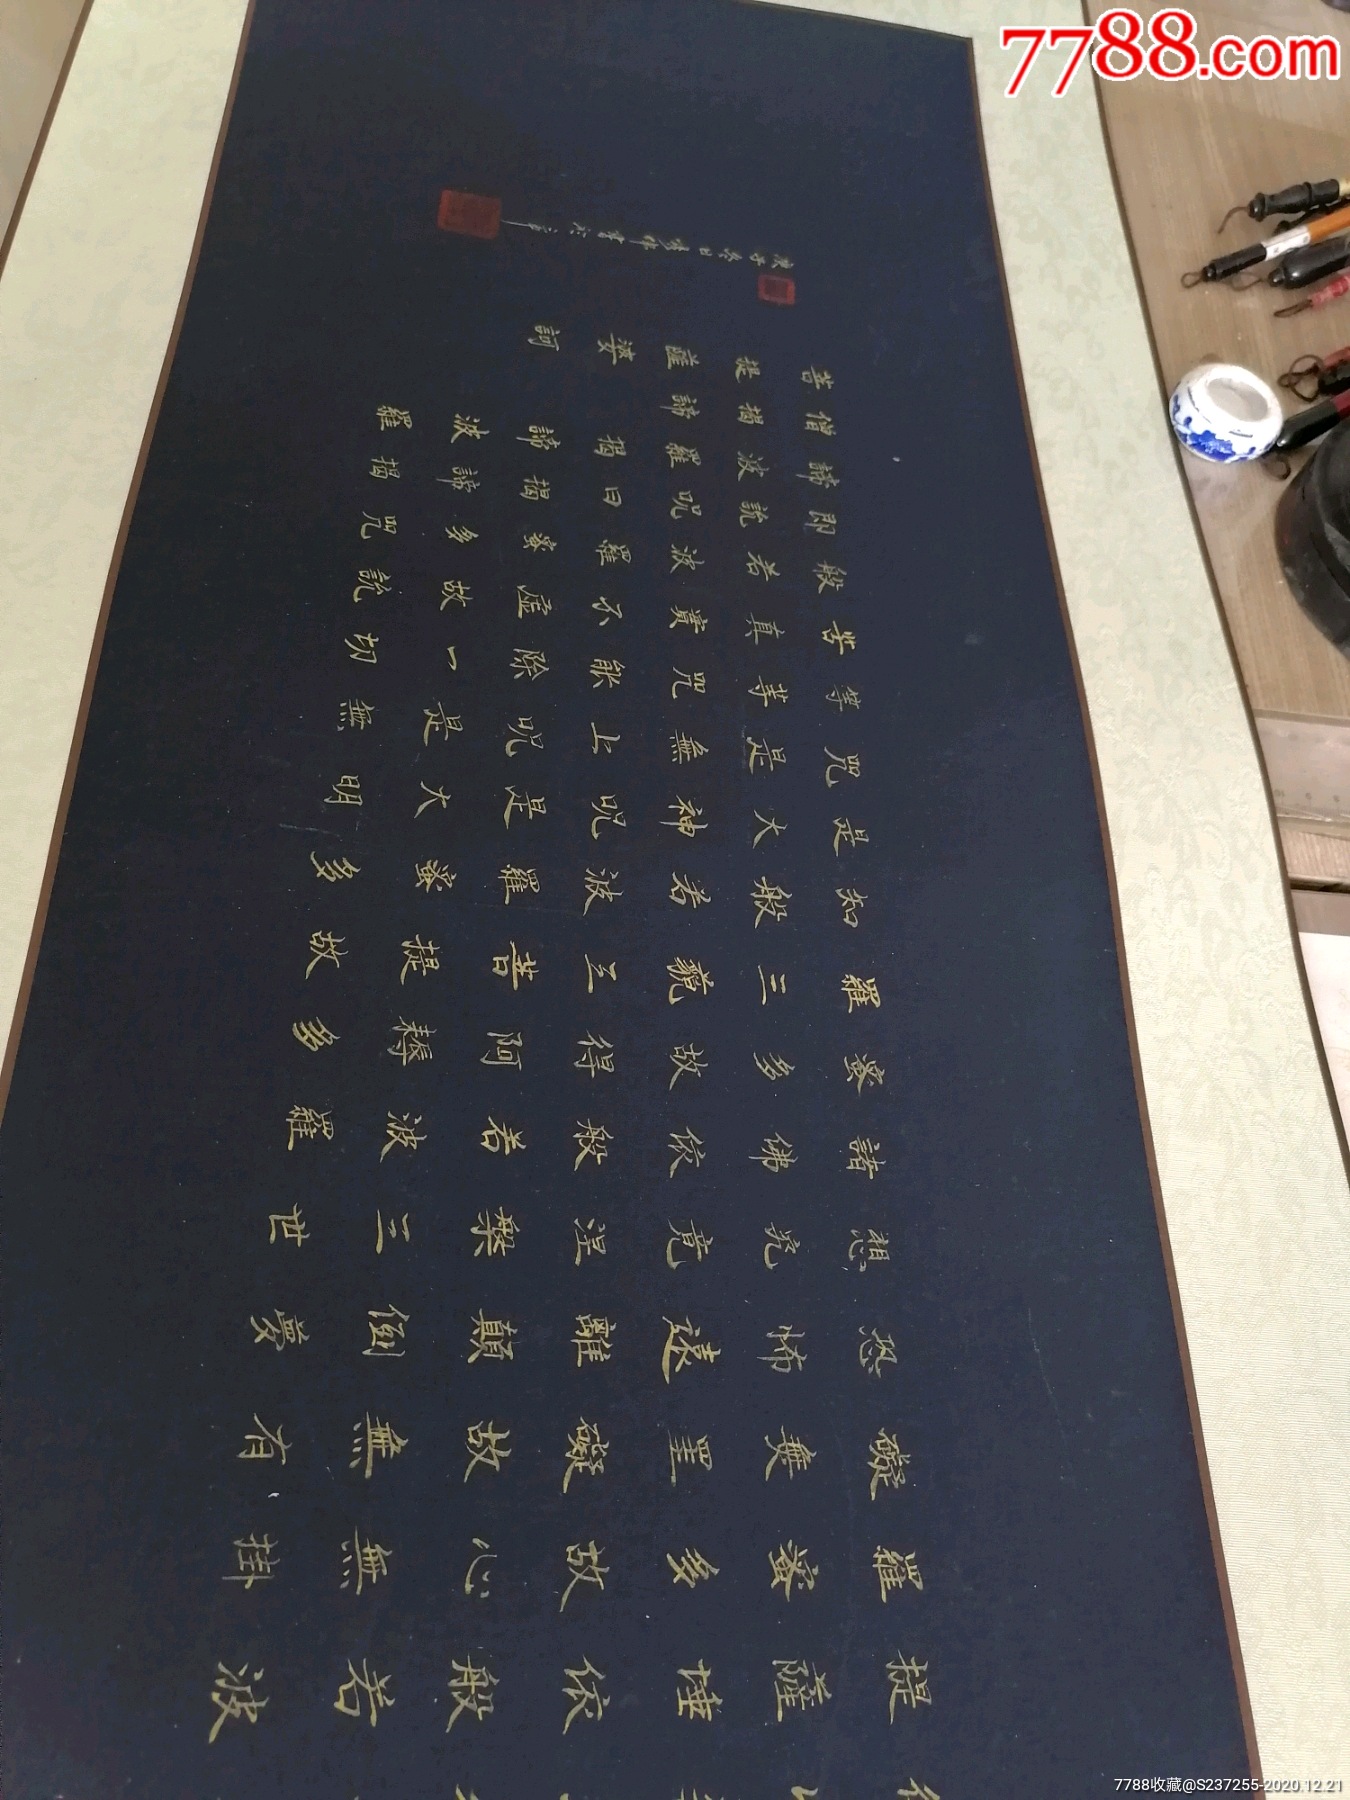 提薩埵依般若波
羅蜜多故心無掛
礙無罣礙故無有
恐怖遠離顛倒夢
想究竟涅槃三世
諸佛依般若波羅
蜜多故得阿耨多
羅三藐三菩提故
知般若波羅蜜多
是大神呪是大明
咒是無上呪是無
等等咒能除一切
苦真實不虛故說
般若波羅蜜多咒
即說呪曰揭諦揭
諦波羅揭諦波羅
僧揭諦
菩提薩婆訶
庚子冬日
7788.com
7788收藏@S237255-2020.12.21